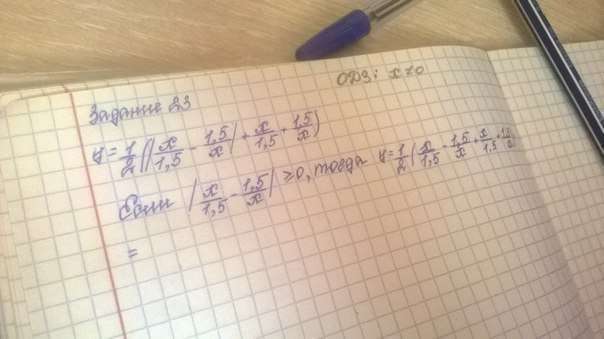 ОДЗ: x≠0
Задание 23
y = 1/2 (|x/1,5 - 1,5/x| + x/1,5 + 1,5/x)
Если |x/1,5 - 1,5/x| ≥ 0, тогда y = 1/2 (x/1,5 - 1,5/x + x/1,5 + 1,5/x)
=